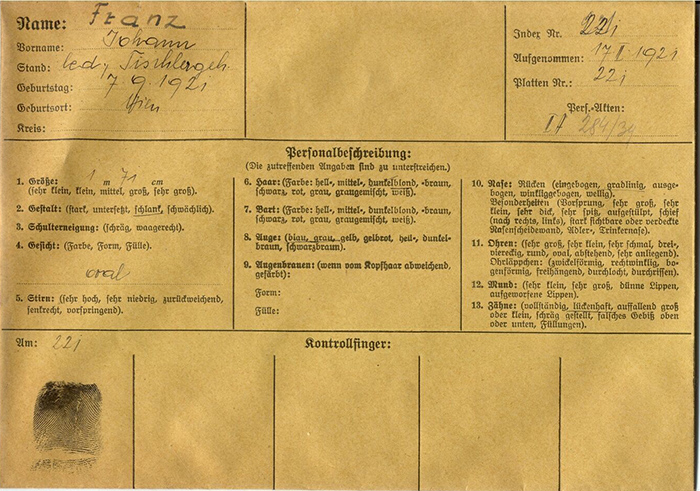 Name: Franz
Vorname: Johann
Stand: led., Tischlergeh.
Geburtstag: 7.9.1921
Geburtsort: Wien
Kreis:
Index Nr. 22i
Aufgenommen: 1921
Platten Nr.: 22i
Pers.-Akten:
284/39
Personalbeschreibung:
(Die zutreffenden Angaben sind zu unterstreichen.)
1. Größe: 1 m 71 cm
(sehr klein, klein, mittel, groß, sehr groß).
2. Gestalt: (stark, untersetzt, schlank, schwächlich).
3. Schulterneigung: (schräg, waagerecht).
4. Gesicht: (Farbe, Form, Fülle).
oval
5. Stirn: (sehr hoch, sehr niedrig, zurückweichend,
senkrecht, vorspringend).
6. Haar: (Farbe: hell-, mittel-, dunkelblond, -braun,
schwarz, rot, grau, graugemischt, weiß).
7. Bart: (Farbe: hell-, mittel-, dunkelblond, -braun,
schwarz, rot, grau, graugemischt, weiß).
8. Auge: (blau, grau, gelb, gelbrot, hell-, dunkel-
braun, schwarzbraun).
9. Augenbrauen: (wenn vom Kopfhaar abweichend,
gefärbt):
Form:
Fülle:
10. Nase: Rücken (eingebogen, gradlinig, ausge-
bogen, winkliggebogen, wellig).
Besonderheiten (Vorsprung, sehr groß, sehr
klein, sehr dick, sehr spitz, aufgestülpt, schief
(nach rechts, links), stark sichtbare oder verdeckte
Nasenscheidewand, Adler-, Trinkernase).
11. Ohren: (sehr groß, sehr klein, sehr schmal, drei-,
viereckig, rund, oval, abstehend, sehr anliegend).
Ohrläppchen: (zwickelförmig, rechtwinklig, bo-
genförmig, freihängend, durchlocht, durchrissen).
12. Mund: (sehr klein, sehr groß, dünne Lippen,
aufgeworfene Lippen).
13. Zähne: (vollständig, lückenhaft, auffallend groß
oder klein, schräg gestellt, falsches Gebiß oben
oder unten, Füllungen).
Am: 22i
Kontrollfinger: